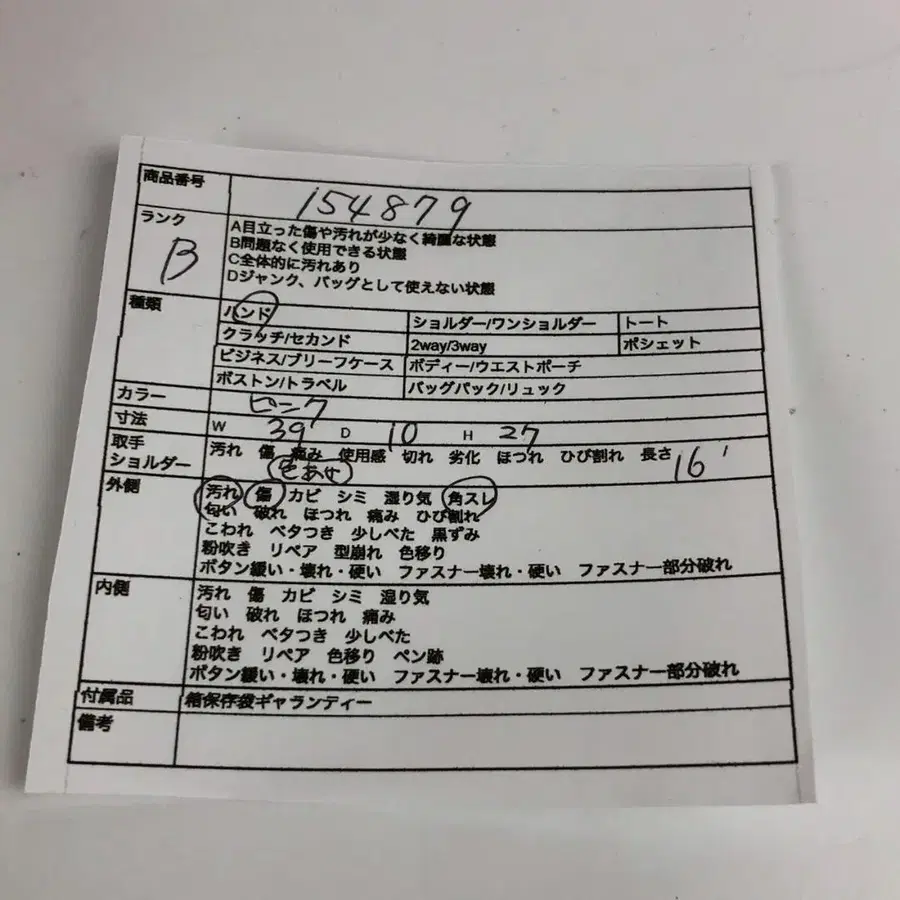 商品番号 154879
ランク B
A目立った傷や汚れが少なく綺麗な状態
B問題なく使用できる状態
C全体的に汚れあり
Dジャンク、バッグとして使えない状態
種類 ハンド ショルダー/ワンショルダー トート
クラッチ/セカンド 2way/3way ポシェット
ビジネス/ブリーフケース ボディー/ウエストポーチ
ボストン/トラベル バッグパック/リュック
カラー ピンク
寸法 W 39 D 10 H 27
取手 汚れ 傷 痛み 使用感 切れ 劣化 ほつれ ひび割れ 長さ 16
ショルダー 色あせ
外側 汚れ 傷 カビ シミ 湿り気 角スレ
匂い 破れ ほつれ 痛み ひび割れ
こわれ ベタつき 少しべた 黒ずみ
粉吹き リペア 型崩れ 色移り
ボタン緩い・壊れ・硬い ファスナー壊れ・硬い ファスナー部分破れ
内側 汚れ 傷 カビ シミ 湿り気
匂い 破れ ほつれ 痛み
こわれ ベタつき 少しべた
粉吹き リペア 色移り ペン跡
ボタン緩い・壊れ・硬い ファスナー壊れ・硬い ファスナー部分破れ
付属品 箱保存袋ギャランティー
備考